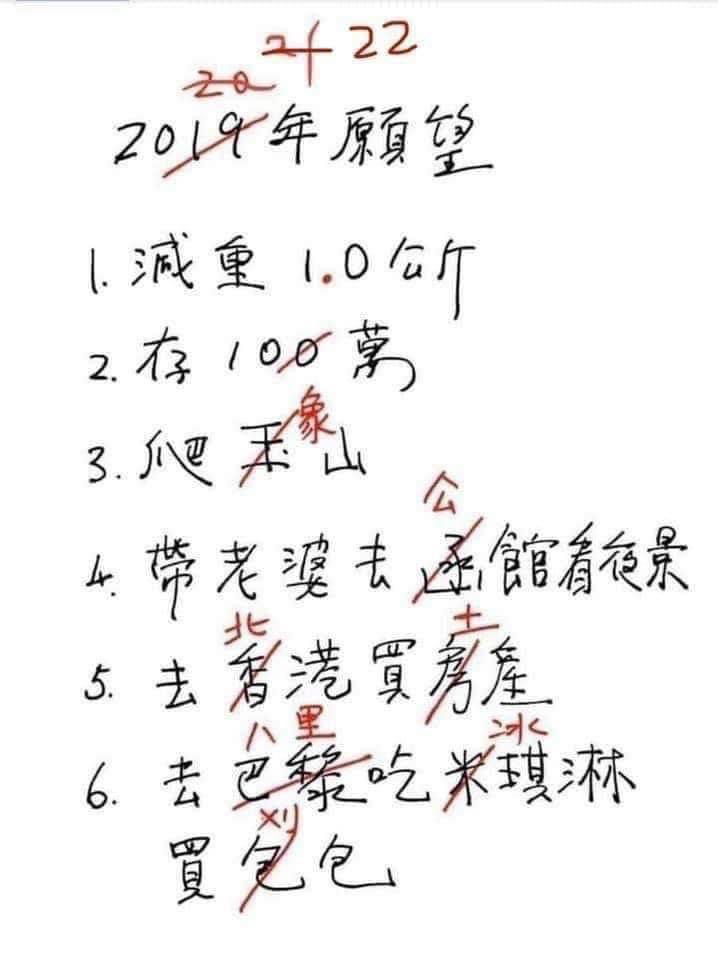 21 22
20
2019年願望
1. 減重 1.0公斤
2. 存 100 萬
象
3. 爬 玉山
公
4. 帶老婆去函館看夜景
北 土
5. 去香港買房產
八里 冰
6. 去巴黎吃米琪淋
刈
買包包